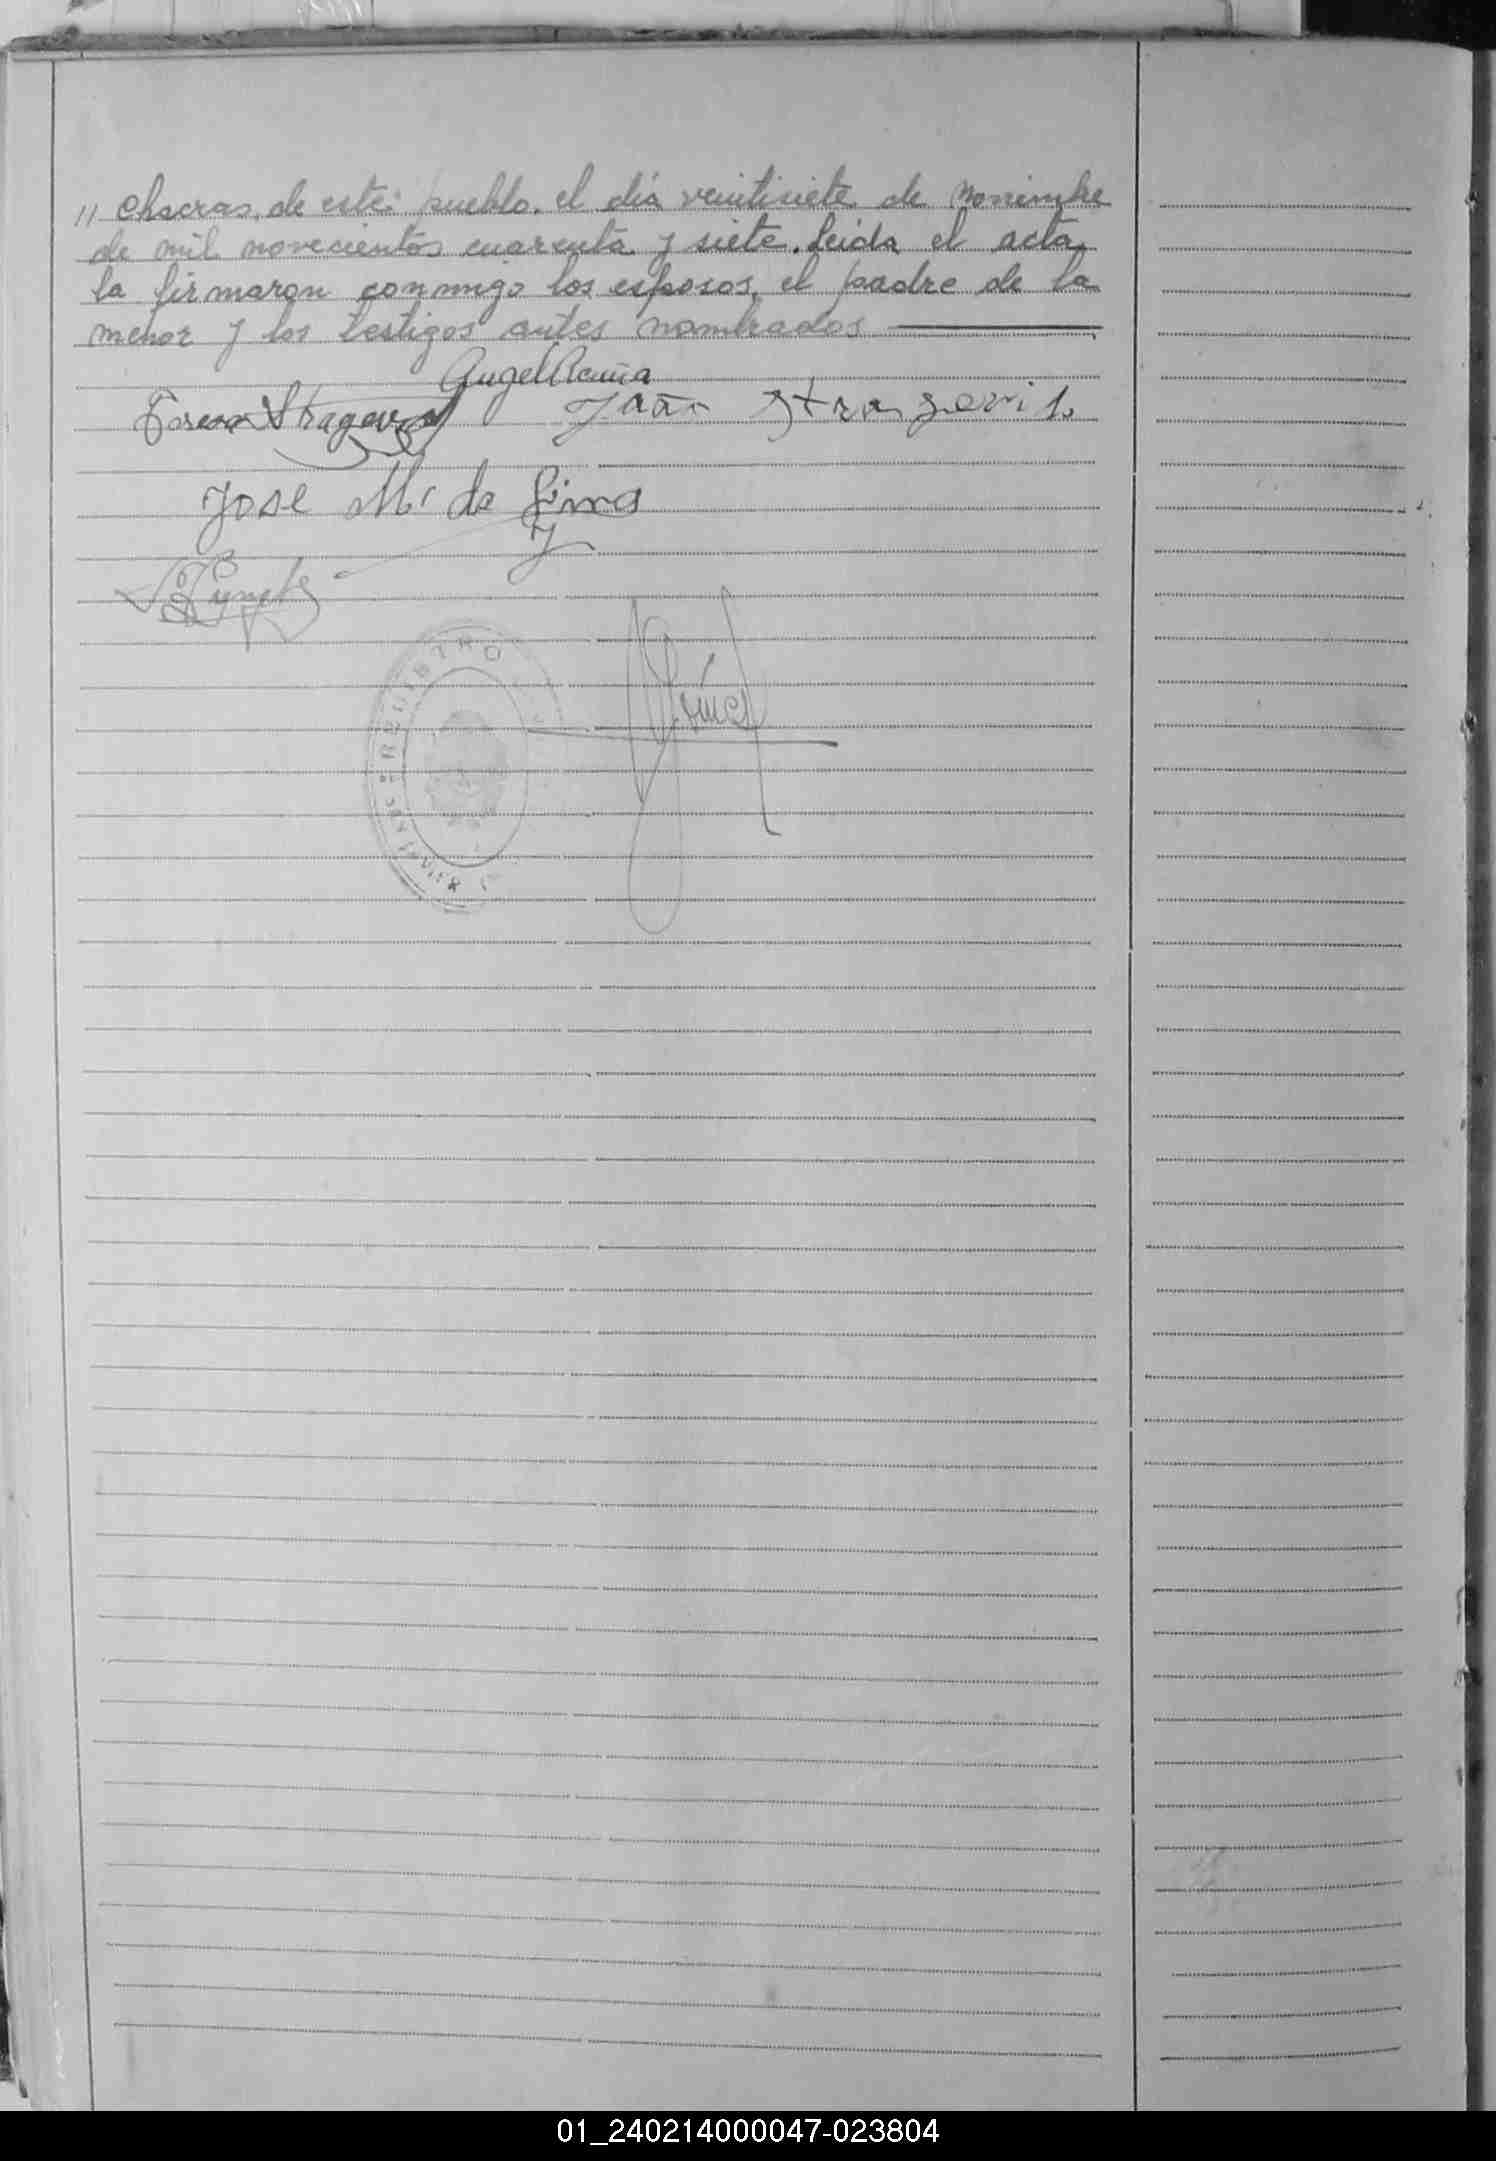 // chacras, de este pueblo, el día veintisiete de noviembre
de mil novecientos cuarenta y siete. Leída el acta,
la firmaron conmigo los esposos, el padre de la
menor y los testigos antes nombrados
Angel Acuña
José Ma de Lima
REGISTRO
01_240214000047-023804